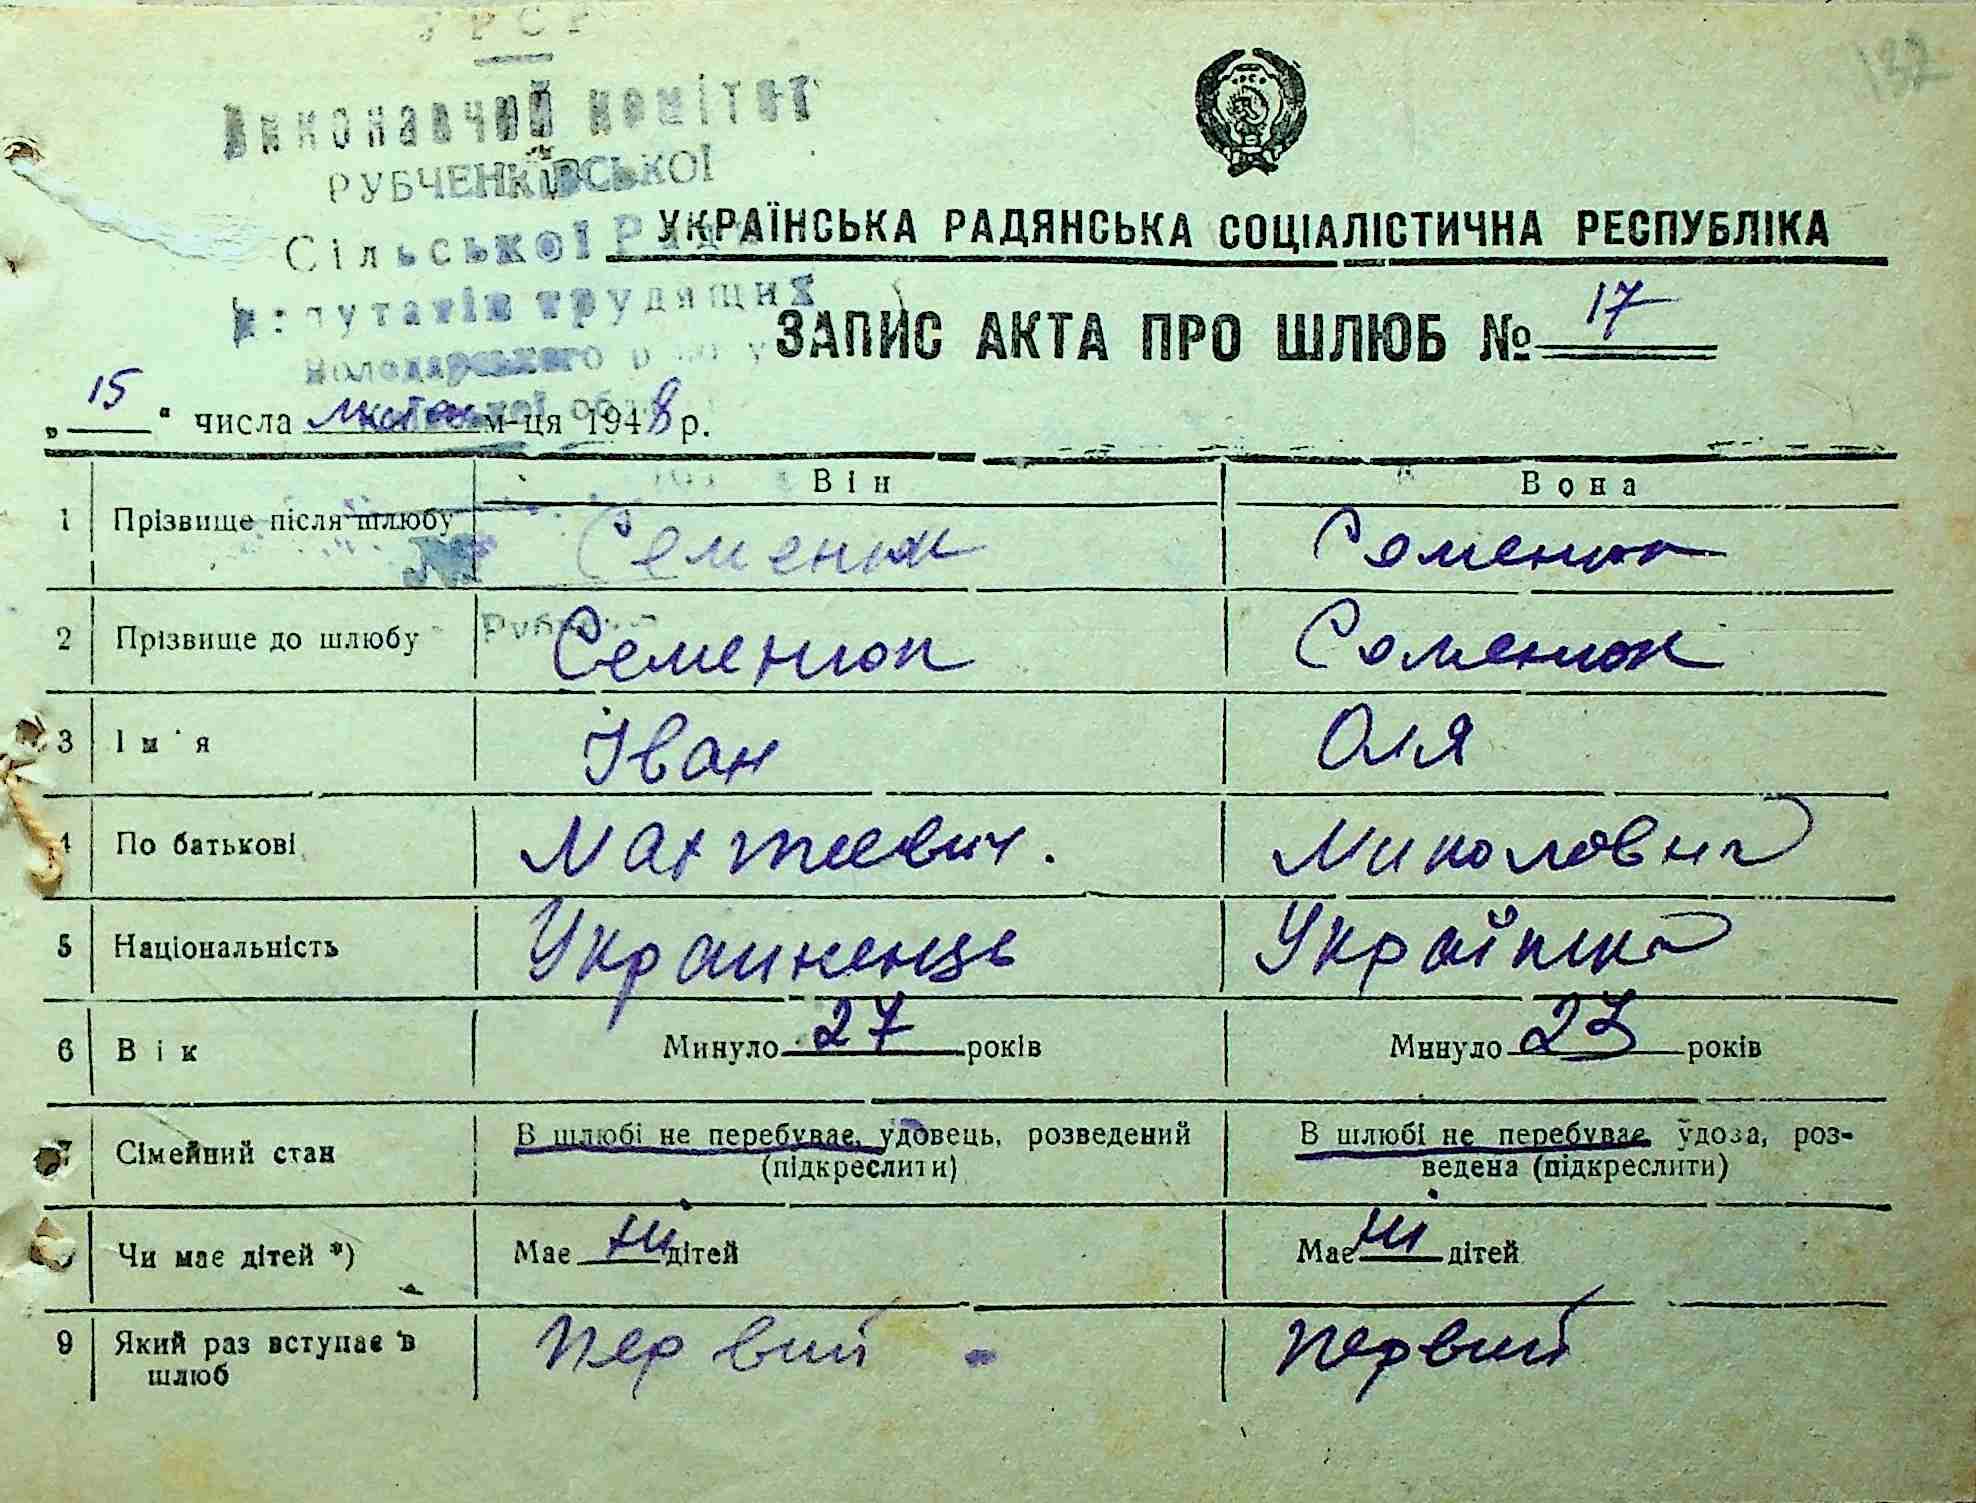 УРСР
132
Виконавчий комітет
РУБЧЕНКІВСЬКОЇ
Сільської Ради
УКРАЇНСЬКА РАДЯНСЬКА СОЦІАЛІСТИЧНА РЕСПУБЛІКА
депутатів трудящих
ЗАПИС АКТА ПРО ШЛЮБ № 17
Володарського р-ну
„15“ числа лютого м-ця 1948 р.
Він Вона
1 Прізвище після шлюбу Семенюк Семенюк
2 Прізвище до шлюбу Семенюк Семенюк
3 Ім'я Іван Оля
4 По батькові Махтеевич. Миколовна
5 Національність Украинець Українка
6 Вік Минуло 27 років Минуло 23 років
7 Сімейний стан В шлюбі не перебуває, удовець, розведений В шлюбі не перебуває удова, роз-
(підкреслити) ведена (підкреслити)
Чи має дітей *) Має ні дітей Має ні дітей
9 Який раз вступає в Первий Первий
шлюб